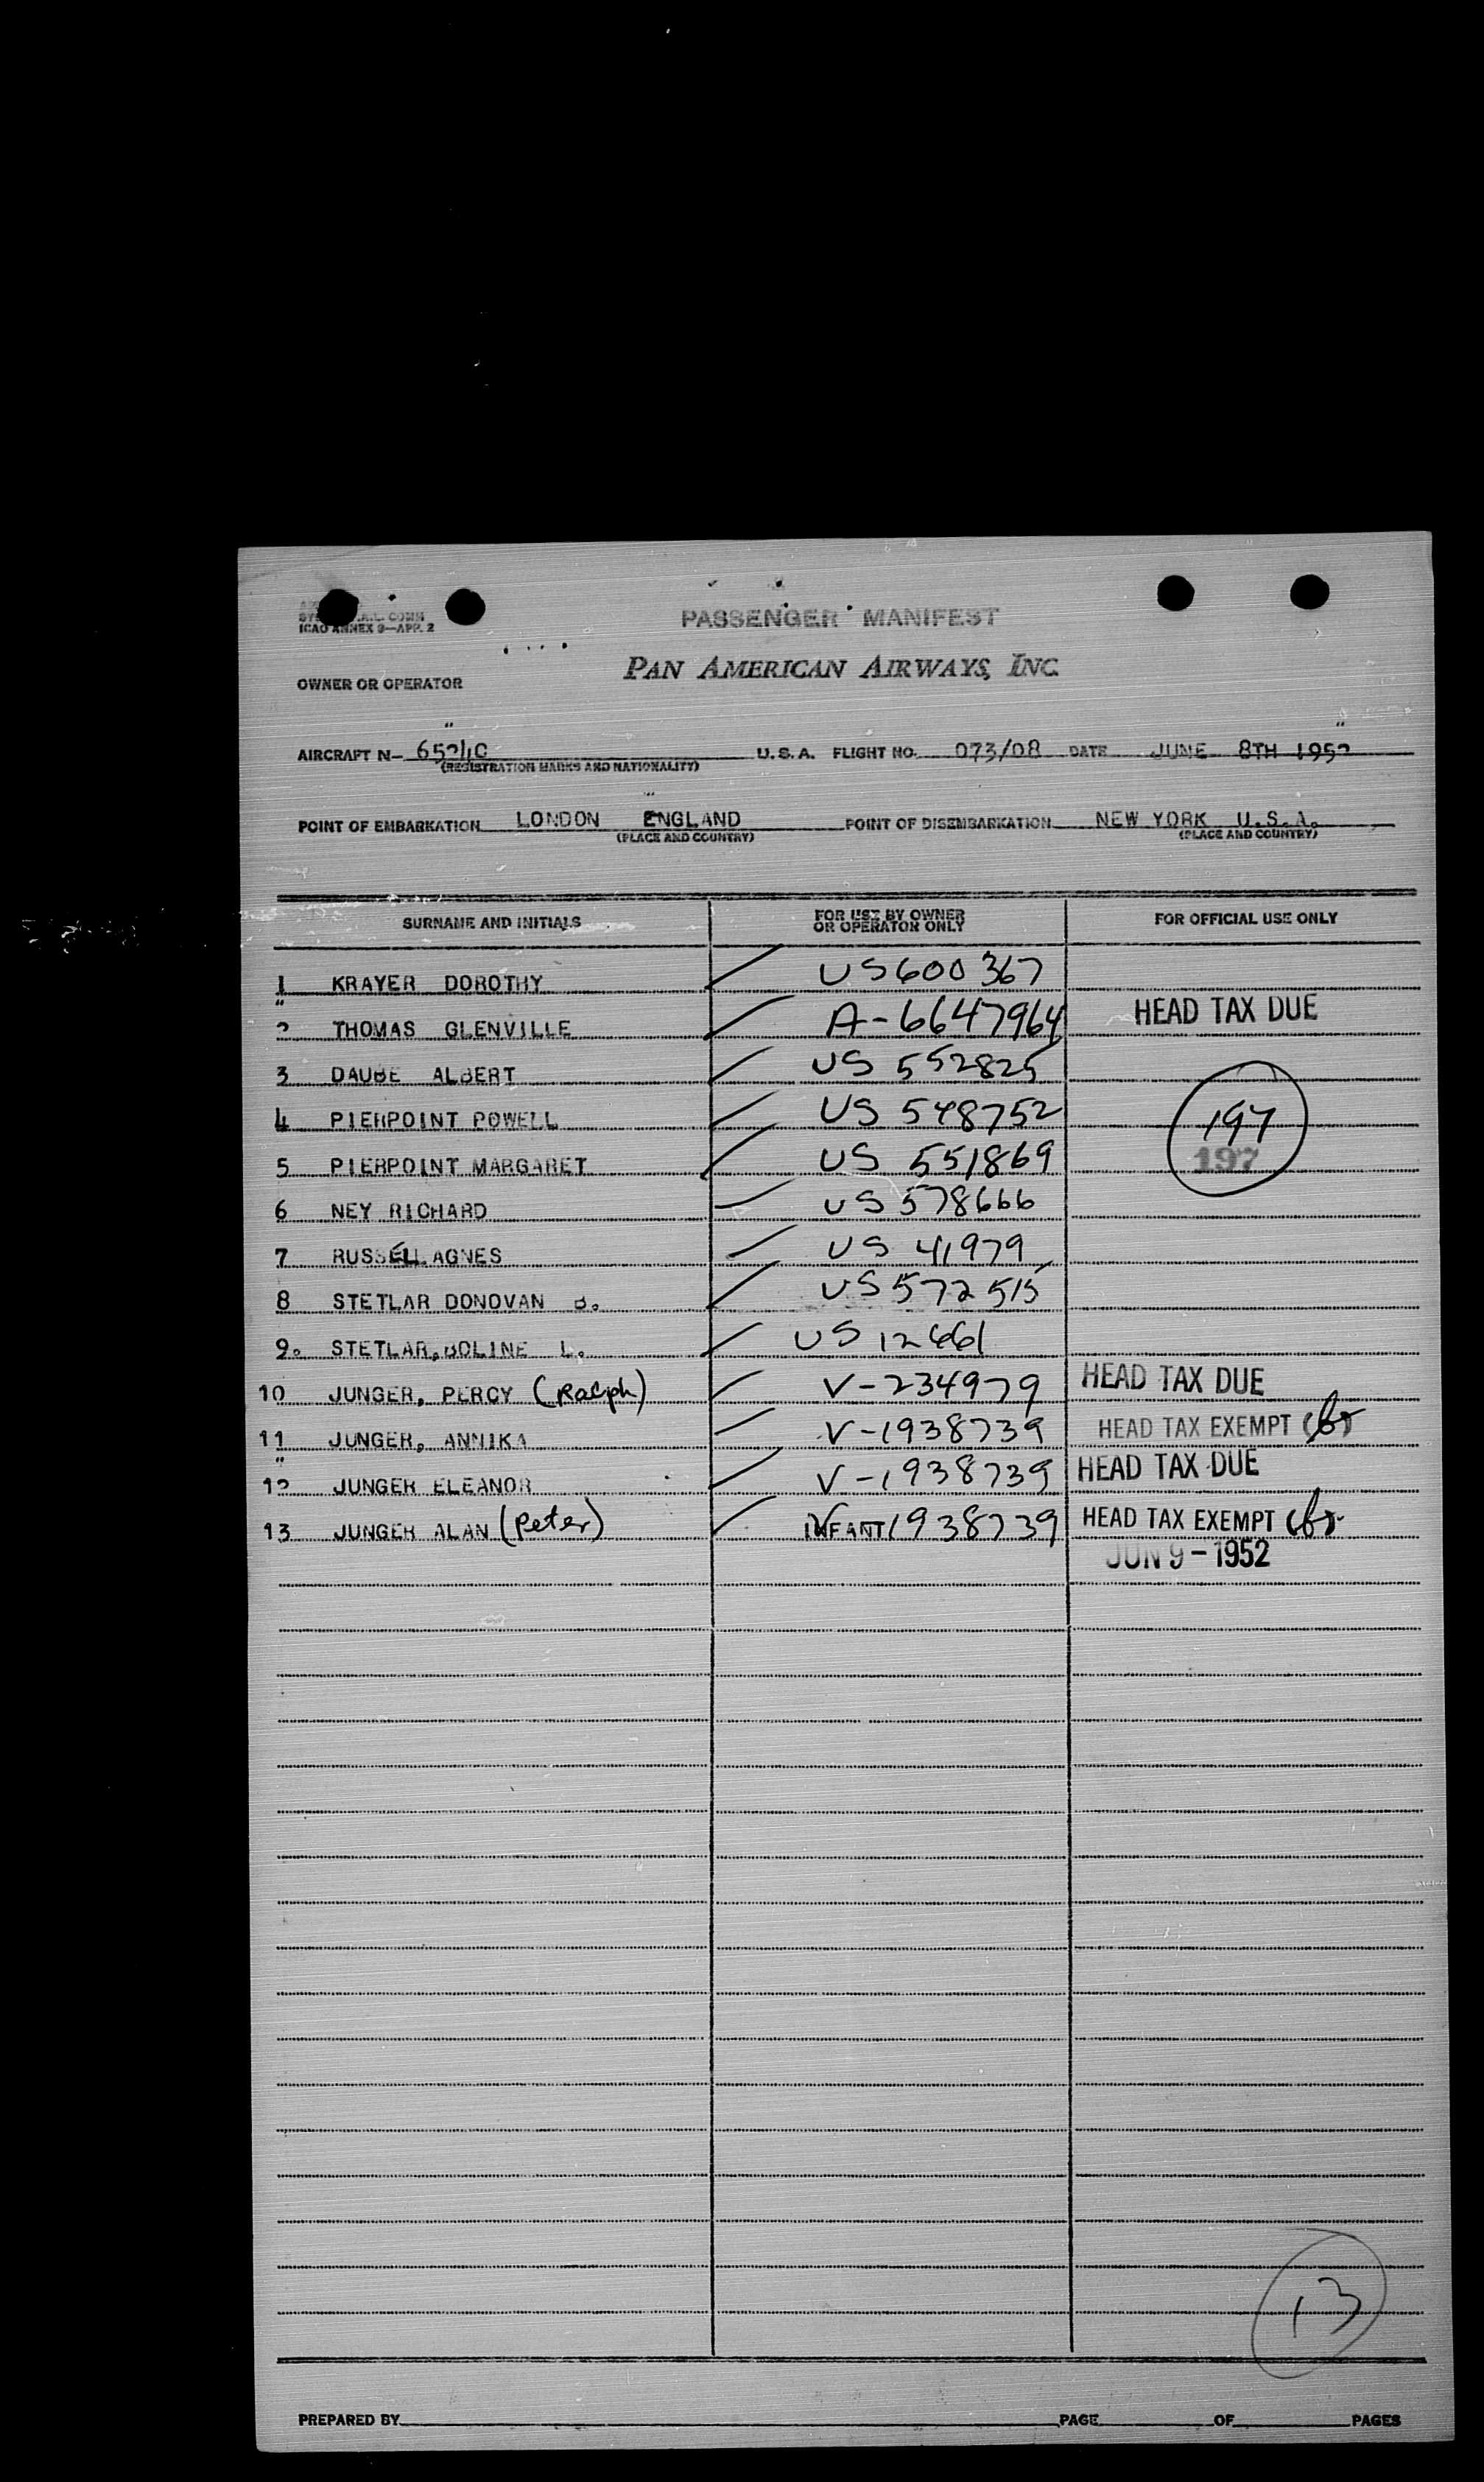 ICAO ANNEX 9—APP. 2
PASSENGER MANIFEST
PAN AMERICAN AIRWAYS, INC.
OWNER OR OPERATOR
AIRCRAFT N- U.S.A. FLIGHT NO. 073/08 DATE JUNE 8TH 1952
(REGISTRATION MARKS AND NATIONALITY)
POINT OF EMBARKATION LONDON ENGLAND POINT OF DISEMBARKATION NEW YORK U.S.A.
(PLACE AND COUNTRY) (PLACE AND COUNTRY)
SURNAME AND INITIALS FOR USE BY OWNER OR OPERATOR ONLY FOR OFFICIAL USE ONLY
1 KRAYER DOROTHY US600367
2 THOMAS GLENVILLE A-6647964 HEAD TAX DUE
3 DAUBE ALBERT US 552825
4 PIERPOINT POWELL US 548752 197
5 PIERPOINT MARGARET US 551869 197
6 NEY RICHARD US 578666
7 RUSSELL AGNES US 41979
8 STETLAR DONOVAN US 572515
9. STETLAR, L. US 12661
10 JUNGER, PERCY (Ralph) V-234979 HEAD TAX DUE
11 JUNGER, ANNIKA V-1938739 HEAD TAX EXEMPT
12 JUNGER ELEANOR V-1938739 HEAD TAX DUE
13 JUNGER ALAN (Peter) INFANT 1938739 HEAD TAX EXEMPT
JUN 9 - 1952
13
PREPARED BY PAGE OF PAGES